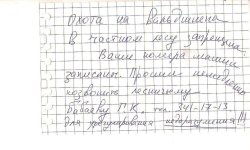 Охота на вальдшнепа
в частном лесу запрещена
Ваши номера машин
записаны. Просим немедленно
позвонить леснич​ему
Г.К. тел. 341-17-13
для урегулирования недоразумения!!!